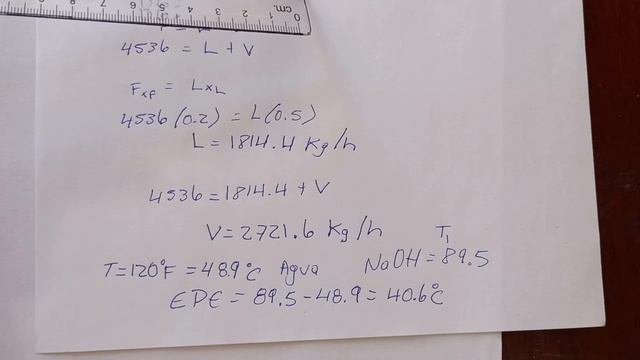 0 1 2 3 4 5 6 7 8
cm.
4536 = L + V
F xF = L xL
4536 (0.2) = L (0.5)
L = 1814.4 Kg/h
4536 = 1814.4 + V
V = 2721.6 Kg/h
T1
T = 120°F = 48.9°C Agua NaOH = 89.5
EPE = 89.5 - 48.9 = 40.6°C